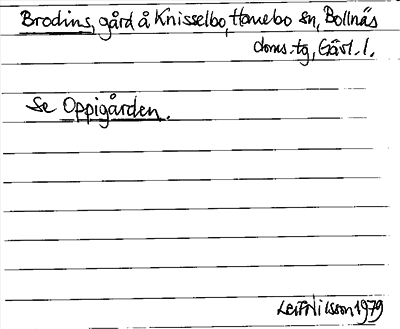 Brodins, gård å Knisselbo, Hanebo sn, Bollnäs
doms.-tg, Gävl. l.
Se Oppigården.
Leif Nilsson 1979